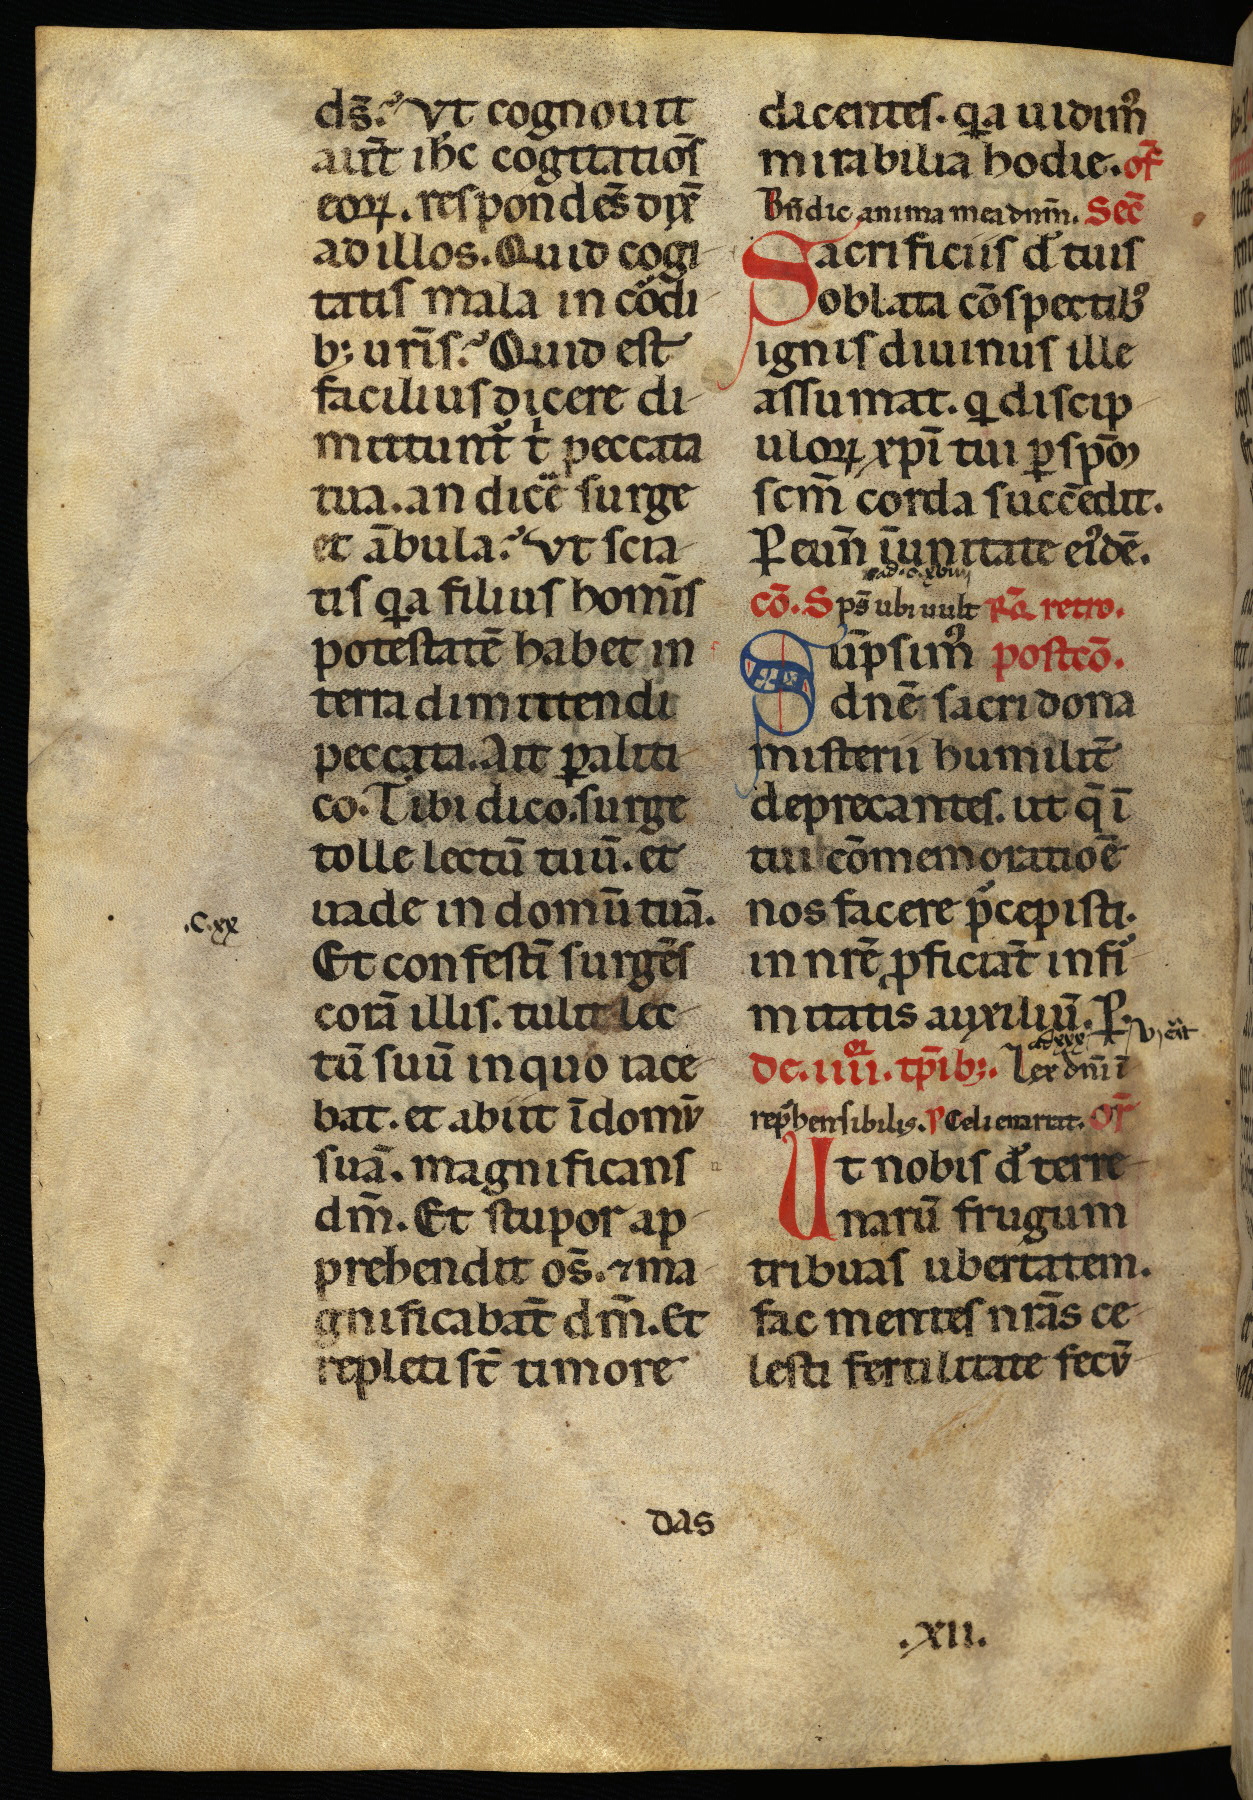 ds̄? Vt cognouit
aūt ih̄c cogitatiōs
eoꝝ. respondēs dix̄
ad illos. Quid cogi
tatis mala in cordi
bꝫ ur̄is? Quid est
facilius dicere di
mittunt̄ t̄ peccata
tua. an dicē surge
et ābula? Vt scia
tis qa filius homīs
potestatē habet in
terra dimittendi
peccata. Ait ꝑaliti
co. Tibi dico. surge
tolle lectū tuū. et
uade in domū tuā.
.C.xx
Et confestī surgēs
corā illis. tulit lec
tū suū in quo iace
bat. et abiit ī domū
suā. magnificans
dm̄. Et stupor ap
prehendit os̄. ⁊ ma
gnificabāt dm̄. Et
repleti st̄ timore
dicentes. qa uidim᷒
mirabilia hodie. of̄
Bn̄dic anima mea dnm̄. Sec̄
Sacrificiis d̄ tuis
oblata cōspectib᷒
ignis diuinus ille
assumat. q discip
uloꝝ xpī tui ꝑ spm̄
scm̄ corda succēdit.
P eun̄ ī unitate ei᷒dē.
ad. c. xviiij
cō. Sps̄ ubi uult Rq̄ retro.
Sūpsim᷒ postcō.
dnē sacri dona
misterii humilit̄
deprecantes. ut q̄ ī
tui cōmemoratiōē
nos facere p̄cepisti.
in nrē ꝓficiāt infi
mitatis auxiliū. P.
ad xxx
Dc. iiii. or tp̄ibꝫ. Lex dnī ī
rep̄hensibilis. P Celi enarrāt. Or̄
Ut nobis d̄ terre
narū frugum
tribuas ubertatem.
fac mentes nrās ce
lesti fertilitate fecū
das
.XII.